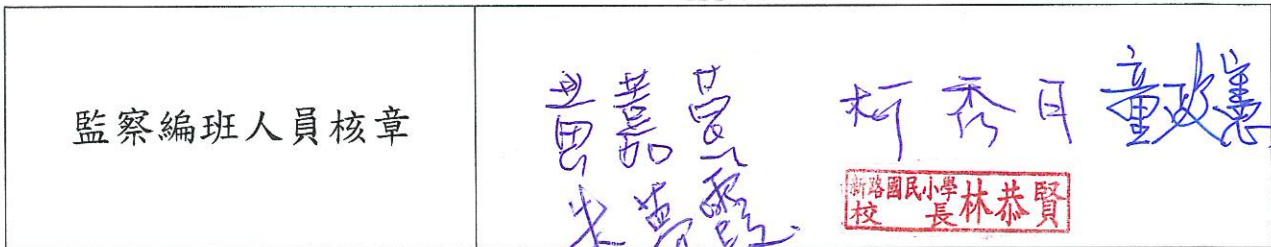 監察編班人員核章
柯秀月 童政憲
新路國民小學
校 長 林恭賢